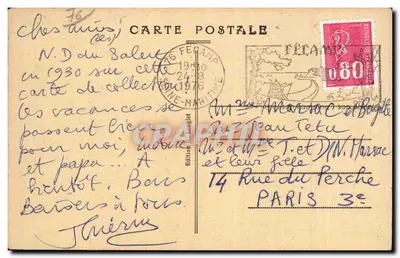 76
CARTE POSTALE
Chers amis
(ies)
N.D du Salut
en 1930 sur cette
carte de collection
les vacances se
passent bien
pour moi,
et papa... A
bientôt. Bons
Baisers à tous.
Thierry
76 FECAMP
19H30
24-8
1976
SEINE-MARITIME
FÉCAMP
0.80
Mme Marsac et Brigitte
Mr Jean Tetu
Mr et Mme T. et N. Marsac
et leur fille
14 Rue du Perche
PARIS 3e